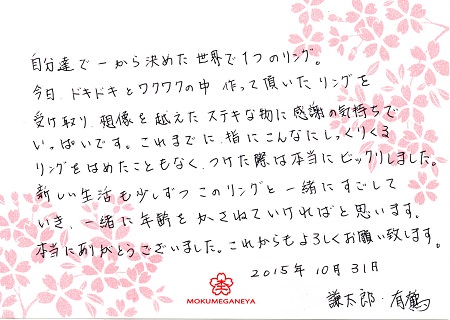 自分達で一から決めた世界で1つのリング。
今日、ドキドキとワクワクの中 作って頂いたリングを
受け取り、想像を越えたステキな物に感謝の気持ちで
いっぱいです。これまでに、指にこんなにしっくりくる
リングをはめたこともなく、つけた際は本当にビックリしました。
新しい生活も少しずつ このリングと一緒にすごして
いき、一緒に年齢をかさねていければと思います。
本当にありがとうございました。これからもよろしくお願い致します。
2015年 10月 31日
謙太郎・有鶴
MOKUMEGANEYA